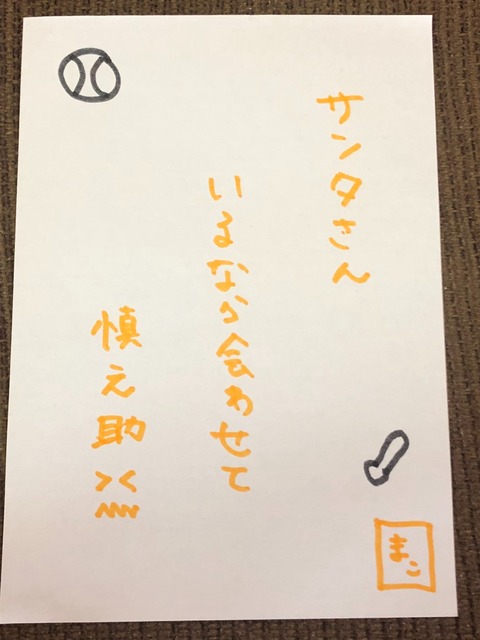 サンタさん
いるなら会わせて
慎之助
まこ